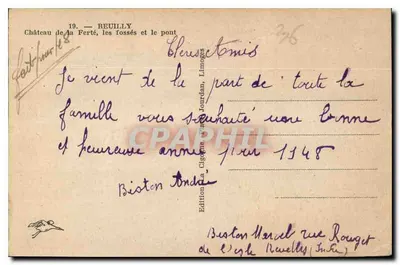 19. — REUILLY
Château de la Ferté, les fossés et le pont
Chers Amis
Je vient de la part de toute la
famille vous souhaité une bonne
et heureuse année pour 1948
Biston André
Biston Marcel rue Rouget
de l'isle Reuilly (Indre)
Edition "La Cigogne" Jourdan, Limoges
CPAPHIL